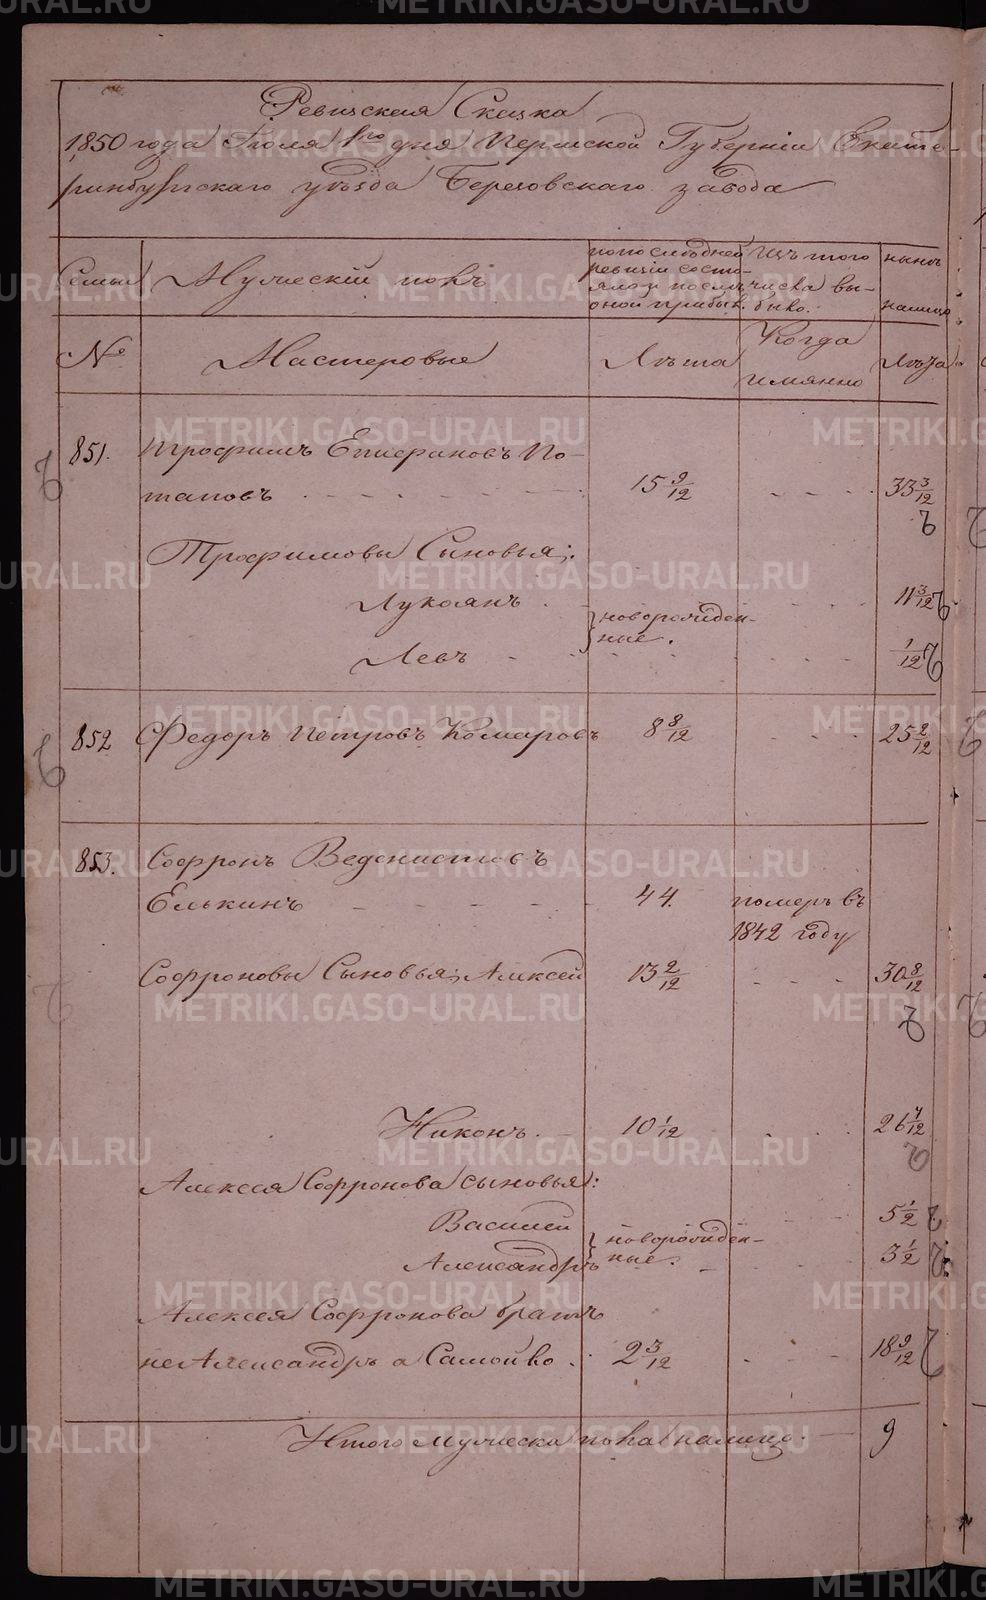 Ревизская Сказка
1850 года Іюля 1го дня Пермской Губерніи Екате-
ринбургскаго уѣзда Березовскаго завода
Семьи
Мужескій полъ
по последней
ревизіи состо-
яло и послѣ
оной прибыл.
Изъ того
числа вы-
было.
нынѣ
налицо
№
Мастеровые
Лѣта
Когда
имянно
Лѣта
851. Трофимъ Епифановъ По-
таповъ 15 9/12 33 3/12
Трофимовы Сыновья:
Лукоянъ 11 3/12
новорожден-
ные.
Левъ 1/12
852 Федоръ Петровъ Комаровъ 8 8/12 25 2/12
853. Софронъ Веденистовъ
Елькинъ 44. померъ въ
1842 году
Софроновы Сыновья: Алексей 13 2/12 30 8/12
Никонъ. 10 1/12 26 7/12
Алексея Софронова сыновья:
Василей 5 1/2
новорожден-
ные.
Александръ 3 1/2
Алексея Софронова братъ
не Александръ а Самойло 2 3/12 18 9/12
Итого мужеска пола налицо. 9
METRIKI.GASO-URAL.RU